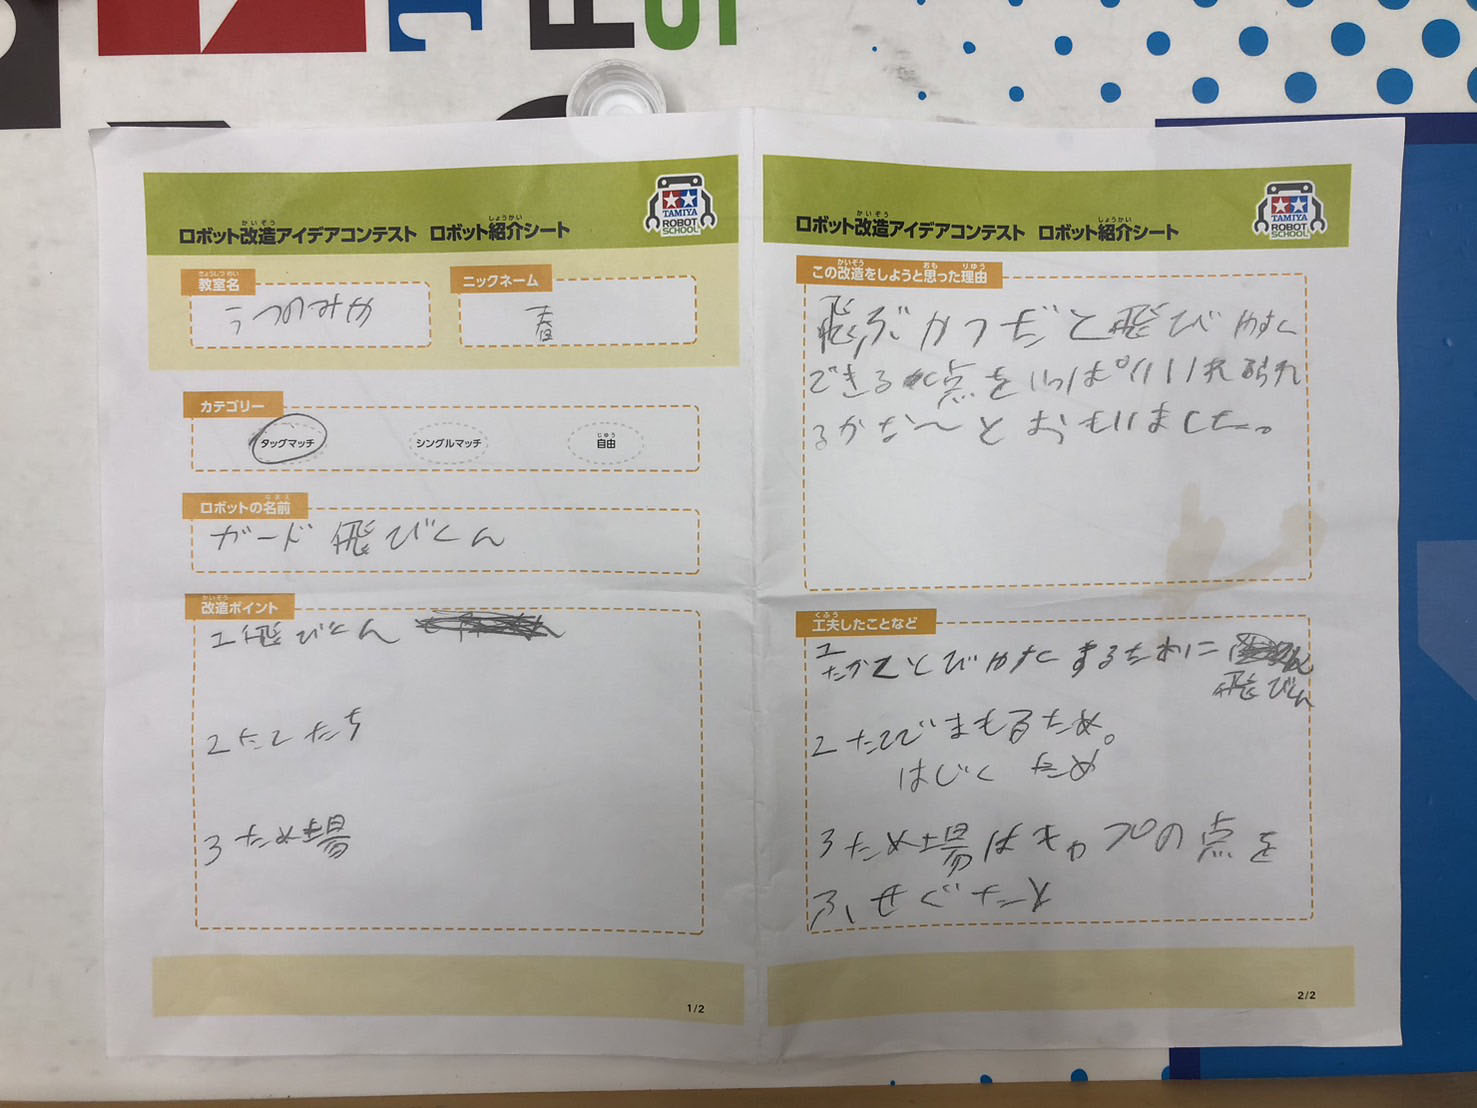 ロボット改造アイデアコンテスト ロボット紹介シート
TAMIYA
ROBOT
SCHOOL
教室名
うつのみや
ニックネーム
春
カテゴリー
タッグマッチ
シングルマッチ
自由
ロボットの名前
ガード飛びくん
改造ポイント
1飛びくん
2たてたち
3ため場
1/2
ロボット改造アイデアコンテスト ロボット紹介シート
TAMIYA
ROBOT
SCHOOL
この改造をしようと思った理由
飛ぶかつだと飛びやすく
できる点をいっぱいいれられ
るかな〜とおもいました。
工夫したことなど
1
たかくとびやすくするために
飛びくん
2たてでまもるため。
はじくため
3ため場はキャップの点を
ふせぐため
2/2